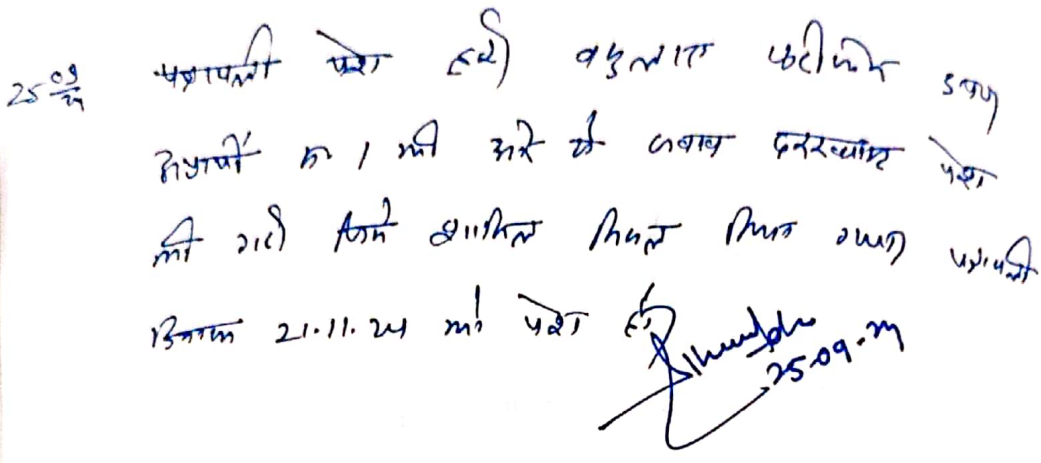 25 09/24 पत्रावली पेश हुई। वकुलाय फरीकैन उपण
अप्रार्थी क्र 1 की ओर से जवाब दरख्वास्त पेश
की गयी जिसे शामिल मिसल किया गया। पत्रावली
दिनांक 21.11.24 को पेश हो।
25-09-24